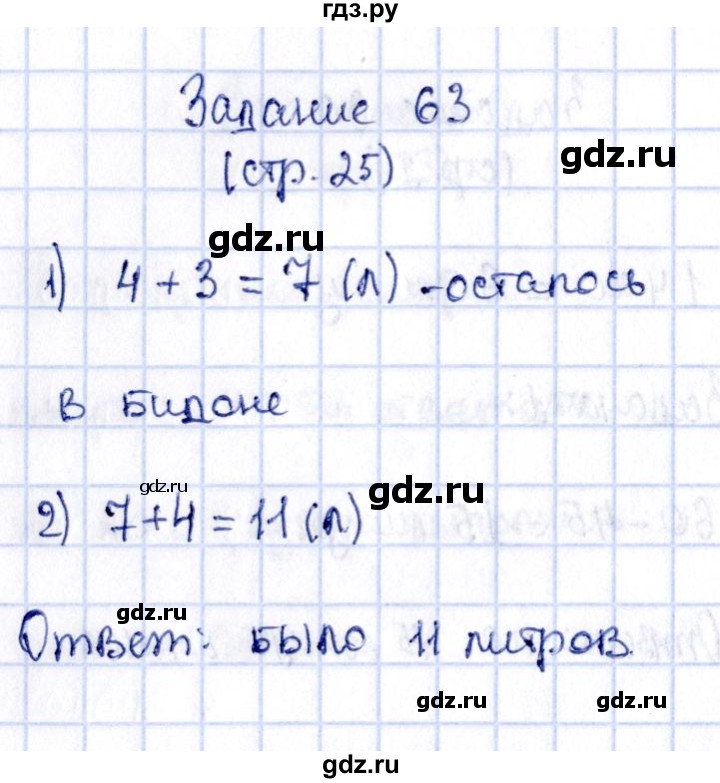 гдз.ру
Задание 63
(стр. 25)
gdz.ru
gdz.ru
1) 4 + 3 = 7 (л) - осталось
в бидоне
gdz.ru
gdz.ru
2) 7 + 4 = 11 (л)
gdz.ru
Ответ: было 11 литров.
gdz.ru
gdz.ru
gdz.ru